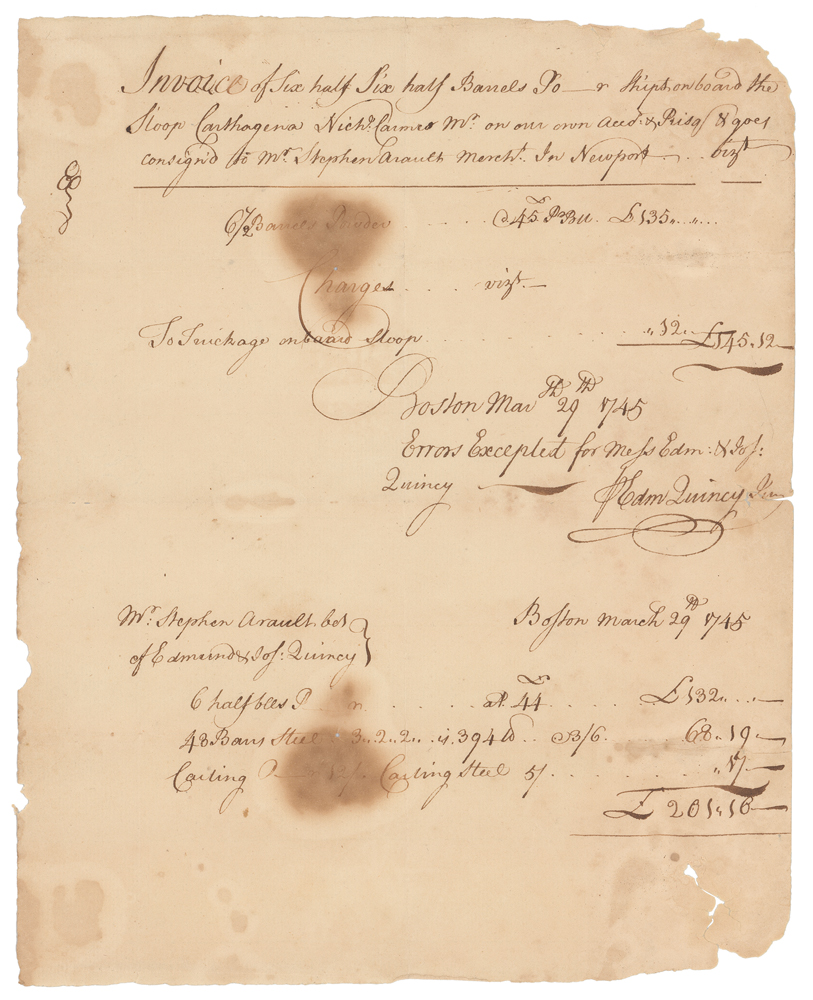 Invoice of Six half Six half Barrels Po—r Shipt on board the
Sloop Carthagena Nichs. Carmes Mr. on our own Accot. & Risq & goes
consign'd to Mr. Stephen Arault Mercht. In Newport - . . vizt
6/2 Barrels Powder . . . . @ 45 P Bll. £135,, ,, ...
Charges . . . . vizt. —
To Truckage on board Sloop . . . . . . . ,, 12.. £145,, 12 —
Boston Mar TH 29 TH 1745
Errors Excepted for Mess Edm: & Jos:
Quincy — P Edm Quincy Jun
Mr. Stephen Arault bot }
of Edmund & Jos: Quincy
Boston March 29th 1745
6 half bles P n. . . . . at 44 . . . . £132,, .. —
48 Bars Steel 3.. 2.. 2.. is 394 lb .. @ 3/6 . . . 68,, 19 —
Carting 12/. Carting Steel 5/ . . . . . . ,, 17 —
£ 201,, 16 —